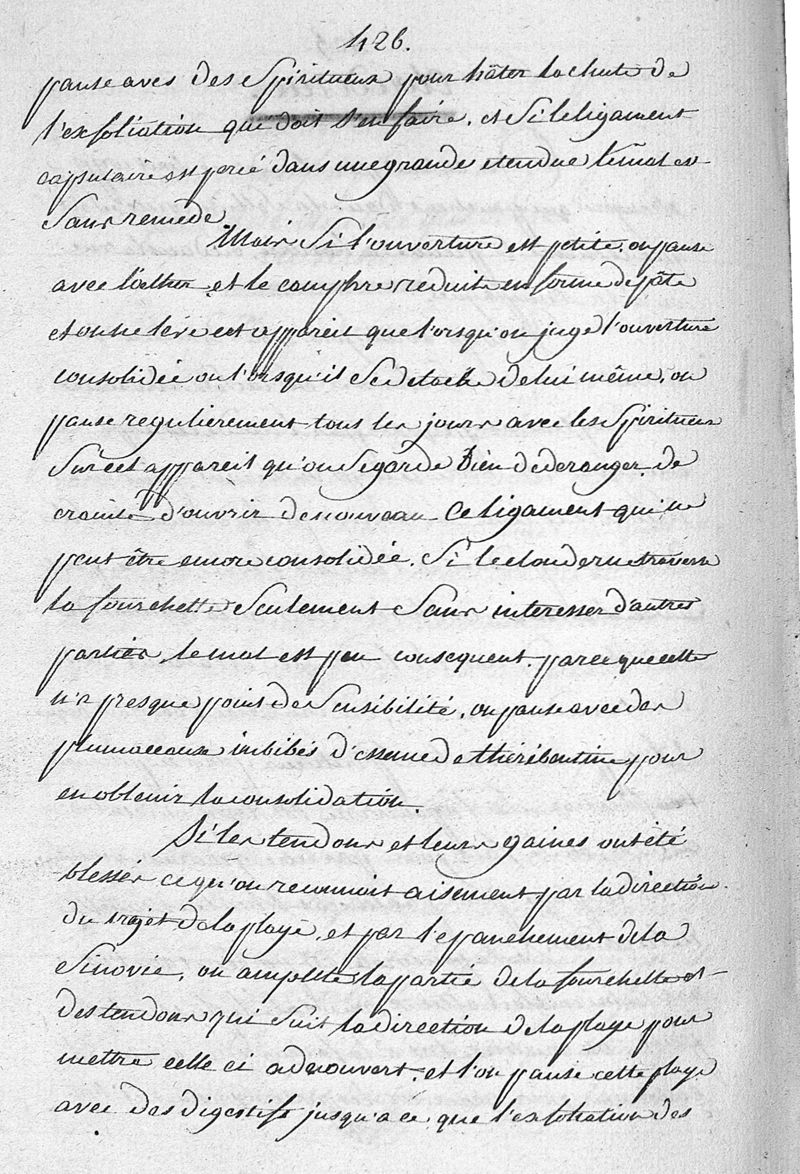 426.
panse avec des Spiritueux pour hâter la chute de
l'exfoliation qui doit s'en faire, et Si le ligament
capsulaire est percé dans une grande etendue le mal est
Sans remede
Mais Si l'ouverture est petite, on panse
avec l'ether et le camphre reduite en forme de pâte
et on ne leve cet appareil que lorsqu'on juge l'ouverture
consolidée ou lorsqu'il Se detache de lui même, on
panse regulierement tous les jours avec les Spiritueux
Sur cet appareil qu'on Se garde bien de deranger de
crainte d'ouvrir de nouveau ce ligament qui ne
peut être encore consolidée. Si le clou de rue traverse
la fourchette Seulement Sans interesser d'autres
parties, le mal est peu consequent, parce que cette
n'a presque point de Sensibilité, on panse avec des
plumaceaux imbibés d'essence de thérébentine pour
en obtenir la consolidation.
Si les tendons et leurs gaines ont été
blessés ce qu'on reconnoit aisement par la direction
du trajet de la playe, et par l'epanchement de la
Sinovie, on ampute la partie de la fourchette et
des tendons qui Suit la direction de la playe pour
mettre celle ci a decouvert, et l'on panse cette playe
avec des digestifs jusqu'a ce que l'exfoliation des